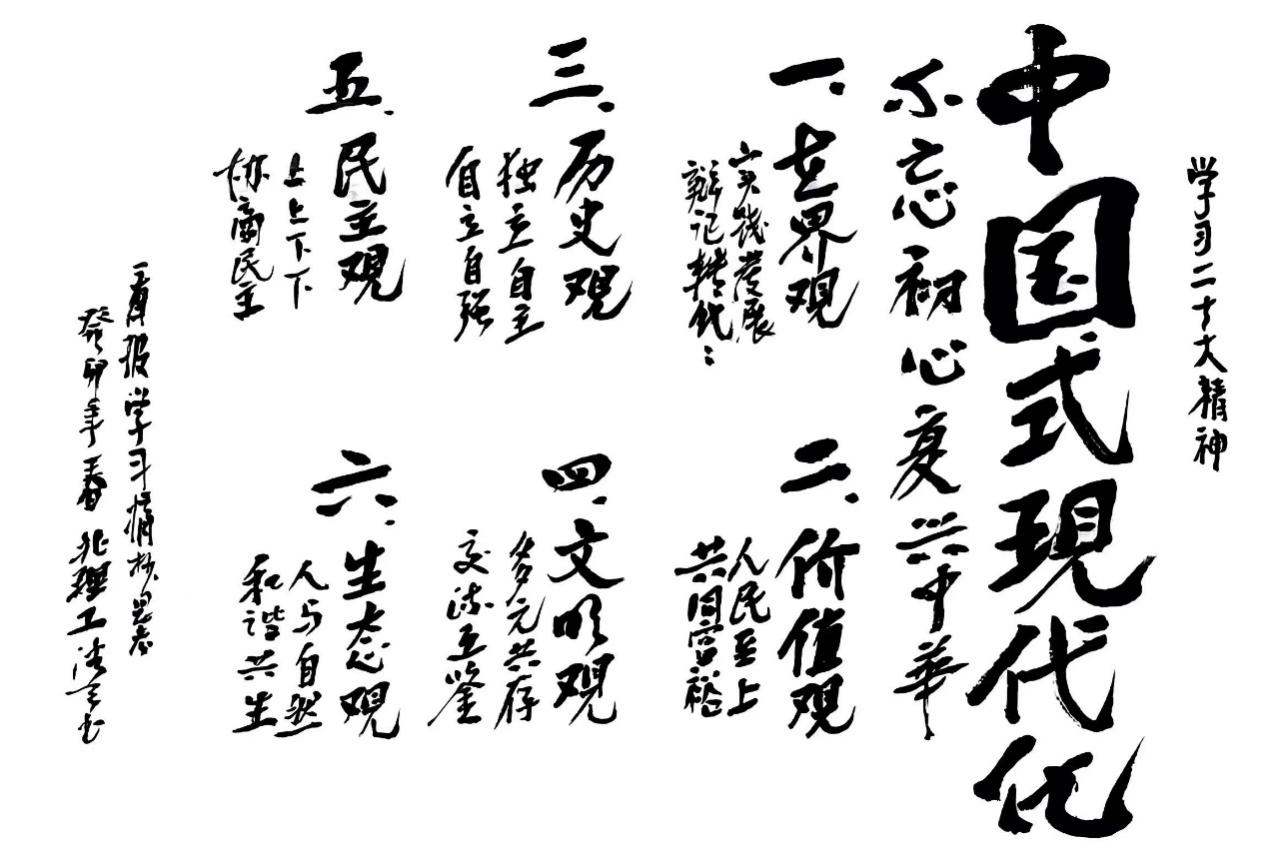 学习二十大精神
中国式现代化
不忘初心复兴中华
一、世界观
实践发展
辩证转化
二、价值观
人民至上
共同富裕
三、历史观
独立自主
自立自强
四、文明观
多元共存
交流互鉴
五、民主观
上上下下
协商民主
六、生态观
人与自然
和谐共生
学习
癸卯年春北理工